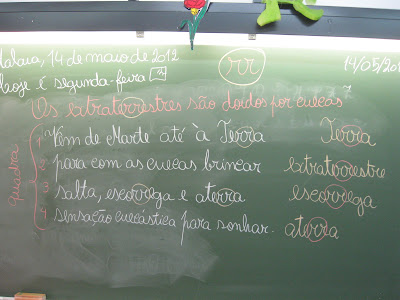 14 de maio de 2012
rr
14/05/20
Hoje é segunda-feira
Os extraterrestres são doidos por cuecas
quadra
1 Vêm de Marte até à Terra
Terra
2 para com as cuecas brincar
extraterrestre
3 salta, escorrega e aterra
escorrega
4 sensação cuecástica para sonhar.
aterra